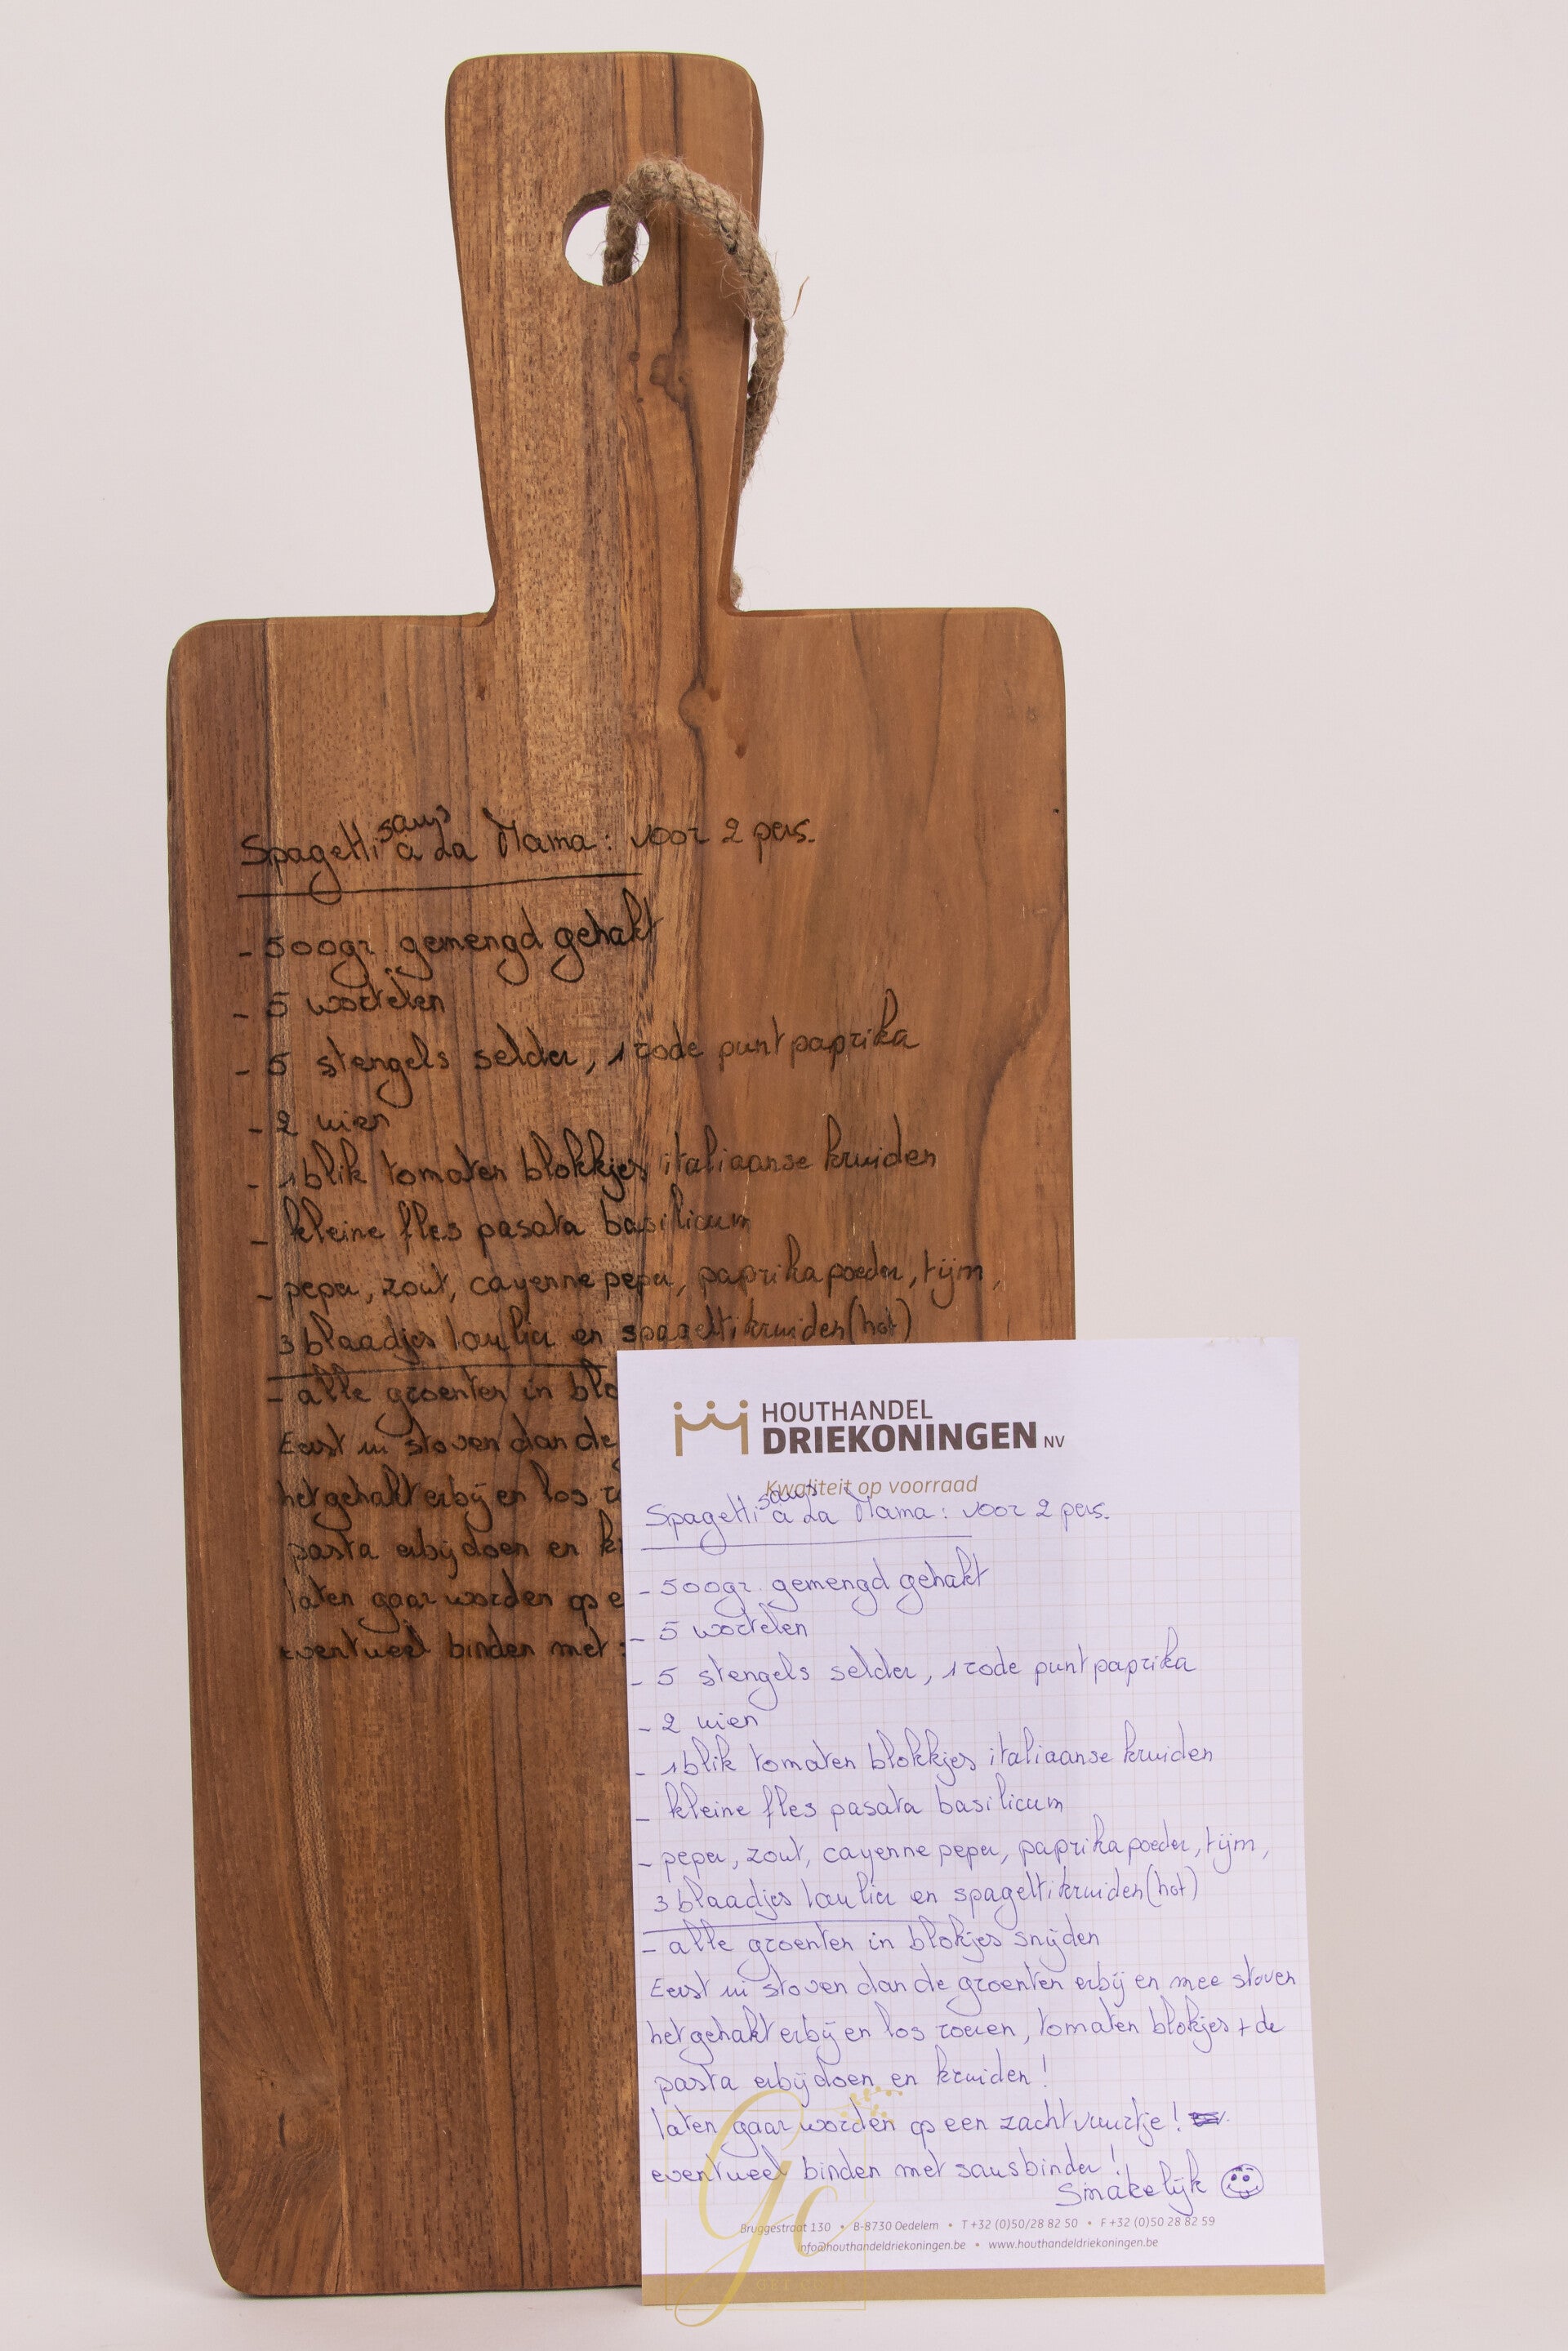 Spagetti saus a La Mama: voor 2 pers.
- 500gr. gemengd gehakt
- 5 wortelen
- 5 stengels selder, 1 rode puntpaprika
- 2 uien
- 1 blik tomaten blokkjes italiaanse kruiden
- kleine fles pasata basilicum
- peper, zout, cayenne peper, paprika poeder, tijm,
3 blaadjes laulier en spagettikruiden (hot)
- alle groenten in blo
Eerst ui stoven dan de
het gehakt erbij en los r
pasta erbij doen en k
laten gaar worden op e
eventueel binden met s
HOUTHANDEL
DRIEKONINGEN NV
Kwaliteit op voorraad
Spagetti saus a La Mama: voor 2 pers.
- 500gr. gemengd gehakt
- 5 wortelen
- 5 stengels selder, 1 rode puntpaprika
- 2 uien
- 1 blik tomaten blokkjes italiaanse kruiden
- kleine fles pasata basilicum
- peper, zout, cayenne peper, paprika poeder, tijm,
3 blaadjes laulier en spagettikruiden (hot)
- alle groenten in blokjes snijden
Eerst ui stoven dan de groenten erbij en mee stoven
het gehakt erbij en los roeren, tomaten blokjes + de
pasta erbij doen en kruiden!
laten gaar worden op een zacht vuurtje!
eventueel binden met sausbinder!
Smakelijk
Bruggestraat 130 • B-8730 Oedelem • T +32 (0)50/28 82 50 • F +32 (0)50 28 82 59
info@houthandeldriekoningen.be • www.houthandeldriekoningen.be
gc